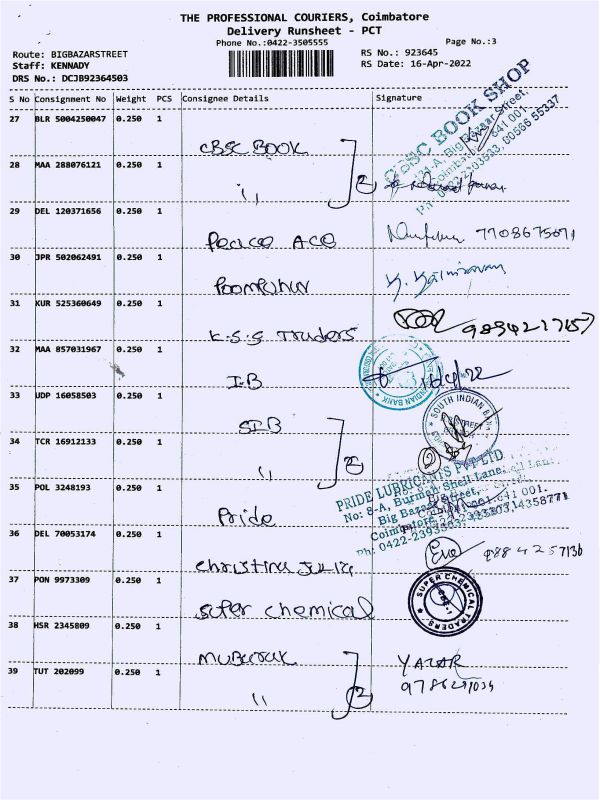 THE PROFESSIONAL COURIERS, Coimbatore
Delivery Runsheet - PCT
Phone No.:0422-3505555
Page No.:3
Route: BIGBAZARSTREET
RS No.: 923645
Staff: KENNADY
RS Date: 16-Apr-2022
DRS No.: DCJB92364503
S No Consignment No Weight PCS Consignee Details Signature
27 BLR 5004250047 0.250 1
CBSC BOOK
CBSC BOOK SHOP
Big Bazaar Street,
28 MAA 288076121 0.250 1
,, 2
29 DEL 120371656 0.250 1
Peacce ACO 7708675671
30 JPR 502062491 0.250 1
Poompuhur
31 KUR 525360649 0.250 1
K.S.S Truders
32 MAA 857031967 0.250 1
I.B 16/4/22
INDIAN BANK
33 UDP 16058503 0.250 1
SIB
SOUTH INDIAN BANK
34 TCR 16912133 0.250 1
,, 2
35 POL 3248193 0.250 1
Pride
PRIDE LUBRICANTS PVT LTD
No: 8-A, Burmah Shell Lane,
Big Bazaar Street,
Coimbatore
Ph: 0422-2393363,
36 DEL 70053174 0.250 1
christina Julie
37 PON 9973309 0.250 1
super chemical
SUPER CHEMICAL TRADERS
38 HSR 2345809 0.250 1
Mubaruk YAZAR
39 TUT 202099 0.250 1
,, 2